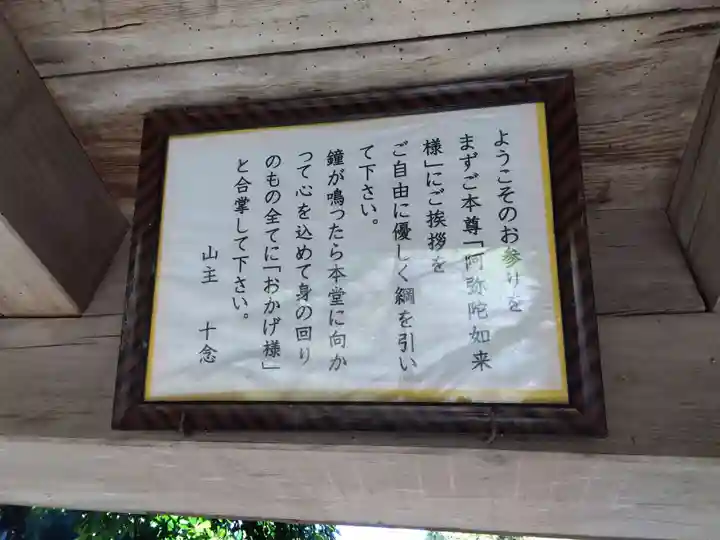 ようこそのお参りを
まずご本尊「阿弥陀如来
様」にご挨拶を
ご自由に優しく綱を引い
て下さい。
鐘が鳴ったら本堂に向か
って心を込めて身の回り
のもの全てに「おかげ様」
と合掌して下さい。
山主　十念